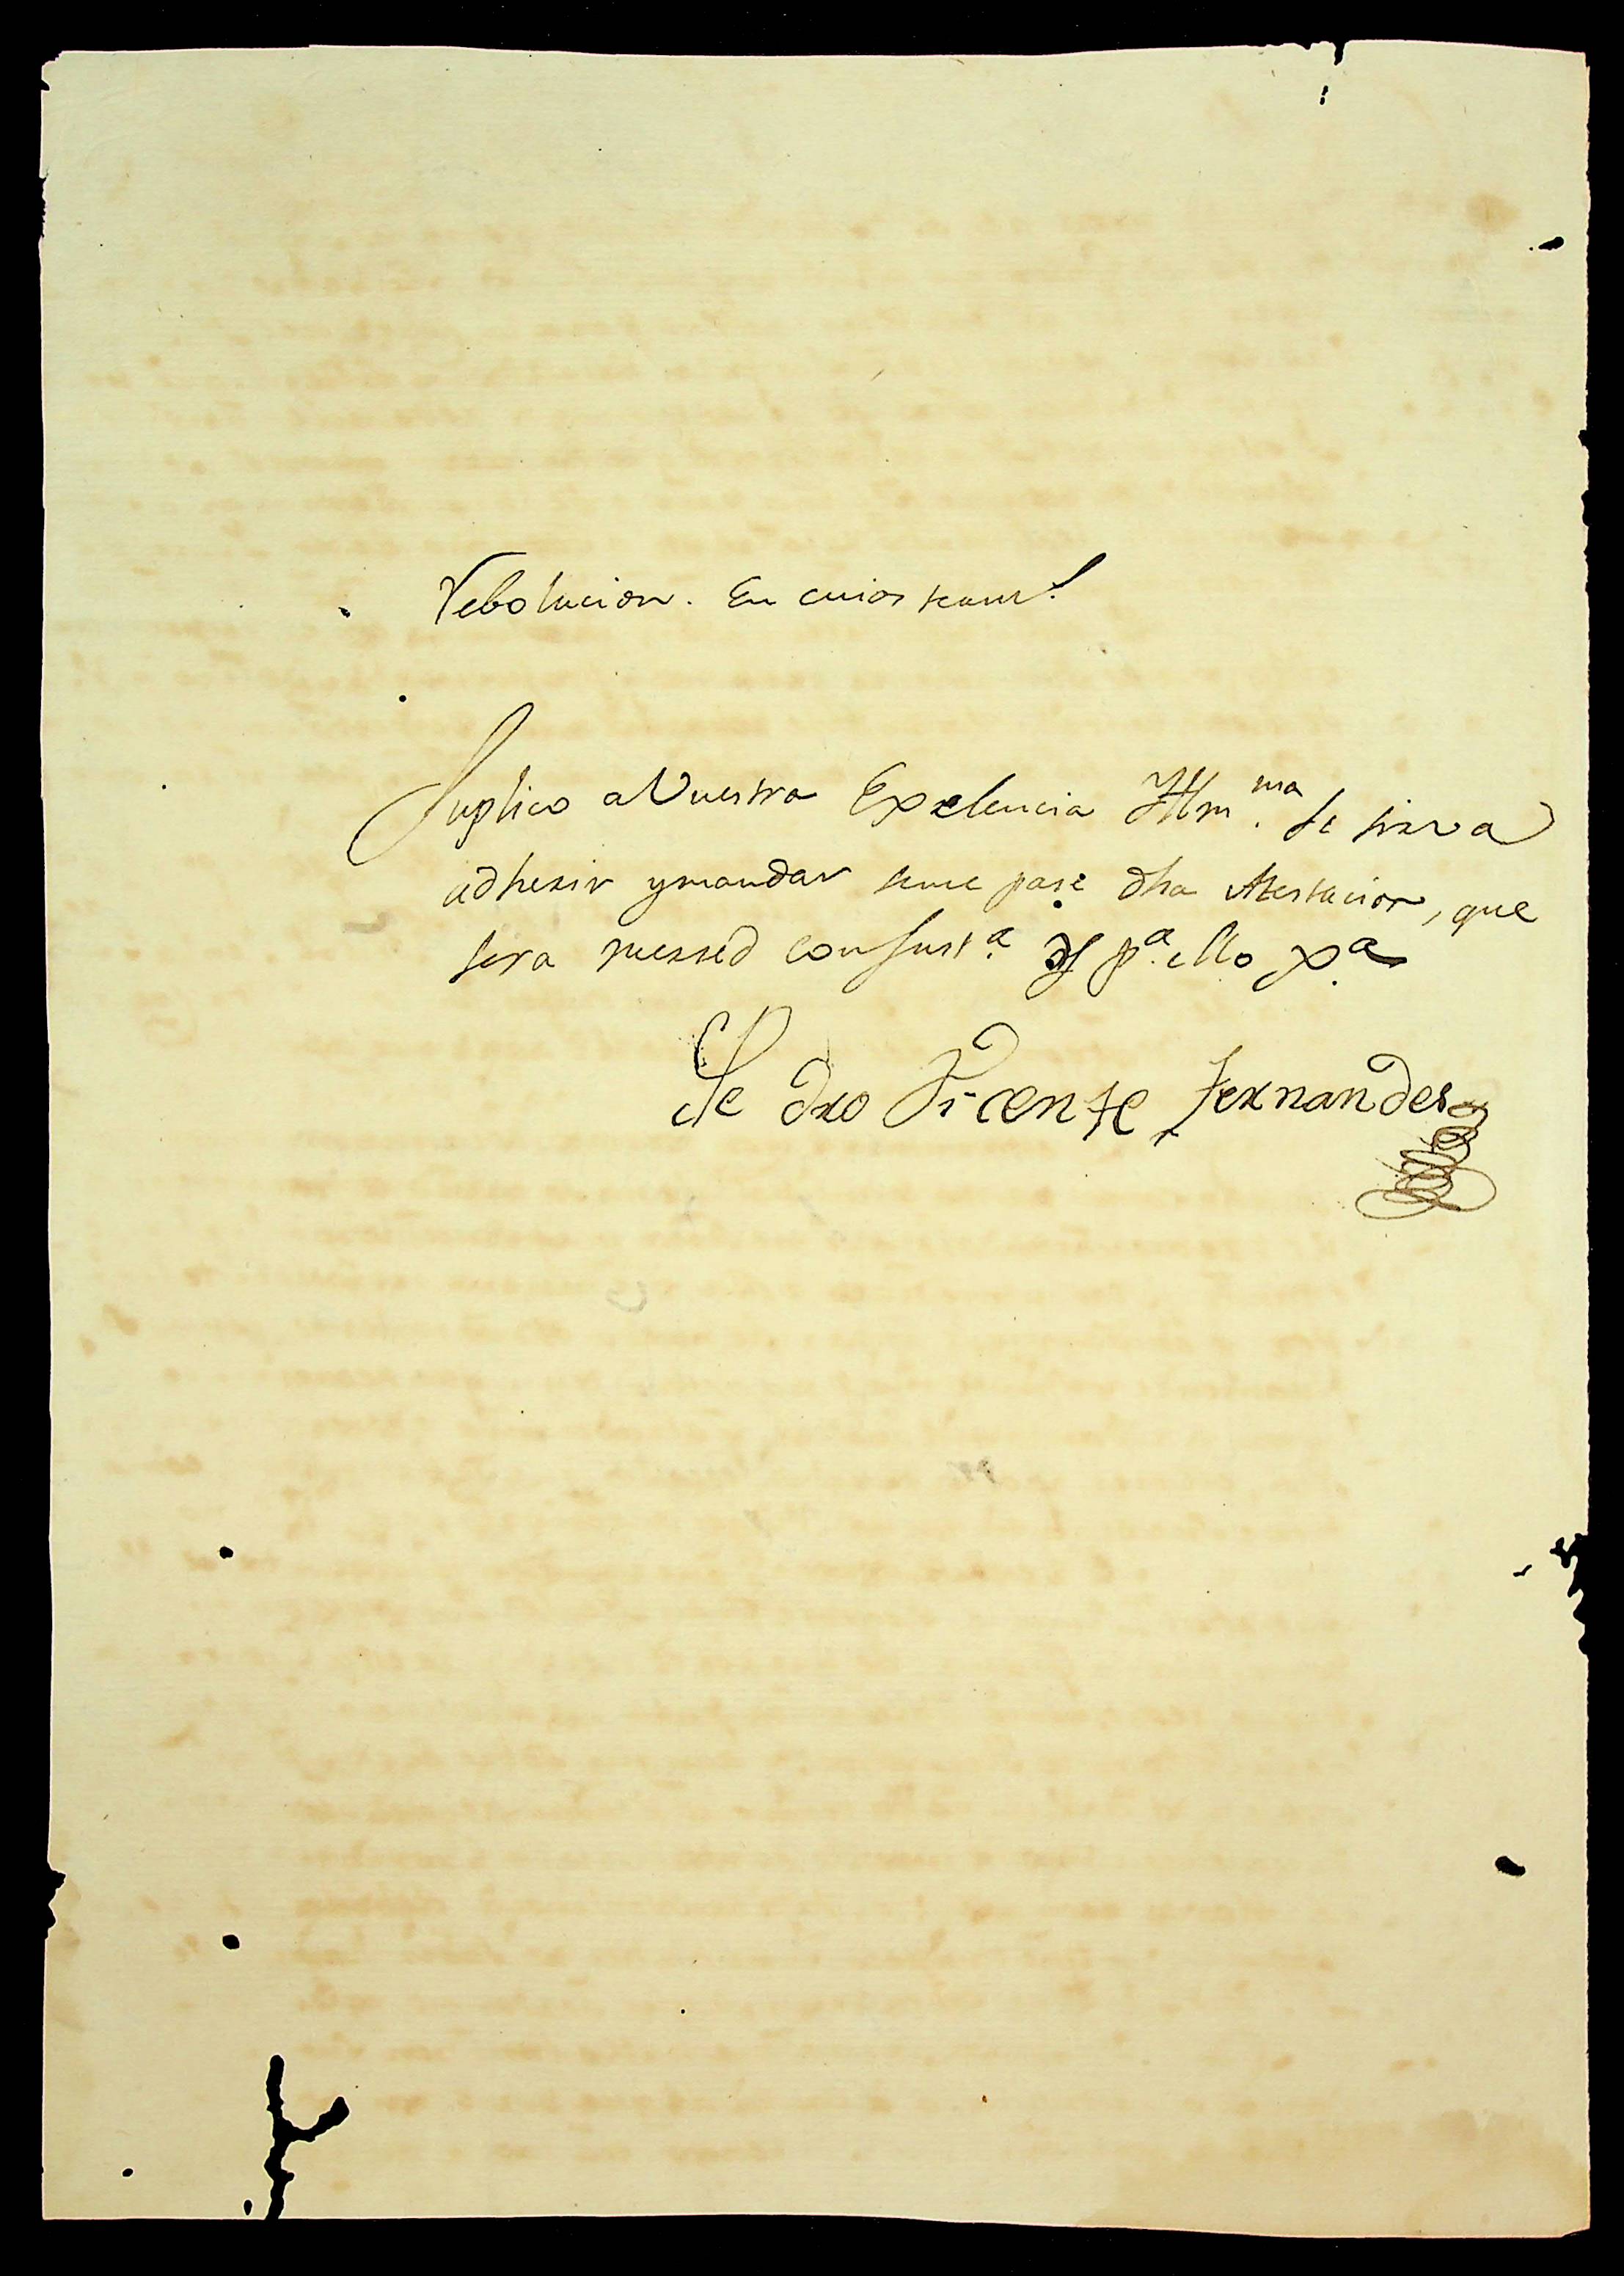 Rebolucion. En cuios term.^s
Suplico a Vuestra Exelencia Illm.^ma Se sirva
adherir y mandar seme pase dha Atestacion, que
sera mersed con Just.^a p.^a ello V.^a
Pe dro Vicente Fernandes